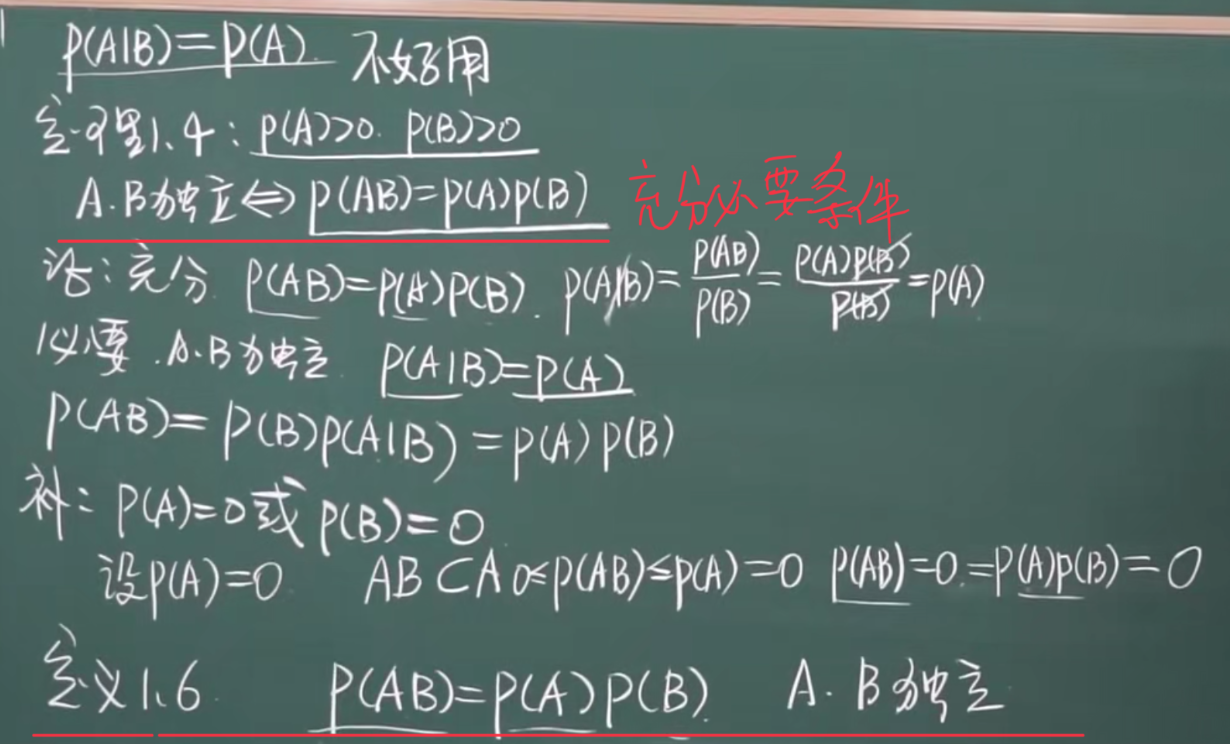 P(A|B)=P(A) 不好用
定理1.4: P(A)>0. P(B)>0
A.B独立⇔P(AB)=P(A)P(B) 充分必要条件
证:充分 P(AB)=P(A)P(B). P(A|B)=P(AB)/P(B)=P(A)P(B)/P(B)=P(A)
必要.A.B独立 P(A|B)=P(A)
P(AB)=P(B)P(A|B)=P(A)P(B)
补:P(A)=0或P(B)=0
设P(A)=0 AB⊂A 0≤P(AB)≤P(A)=0 P(AB)=0.=P(A)P(B)=0
定义1.6 P(AB)=P(A)P(B). A.B独立